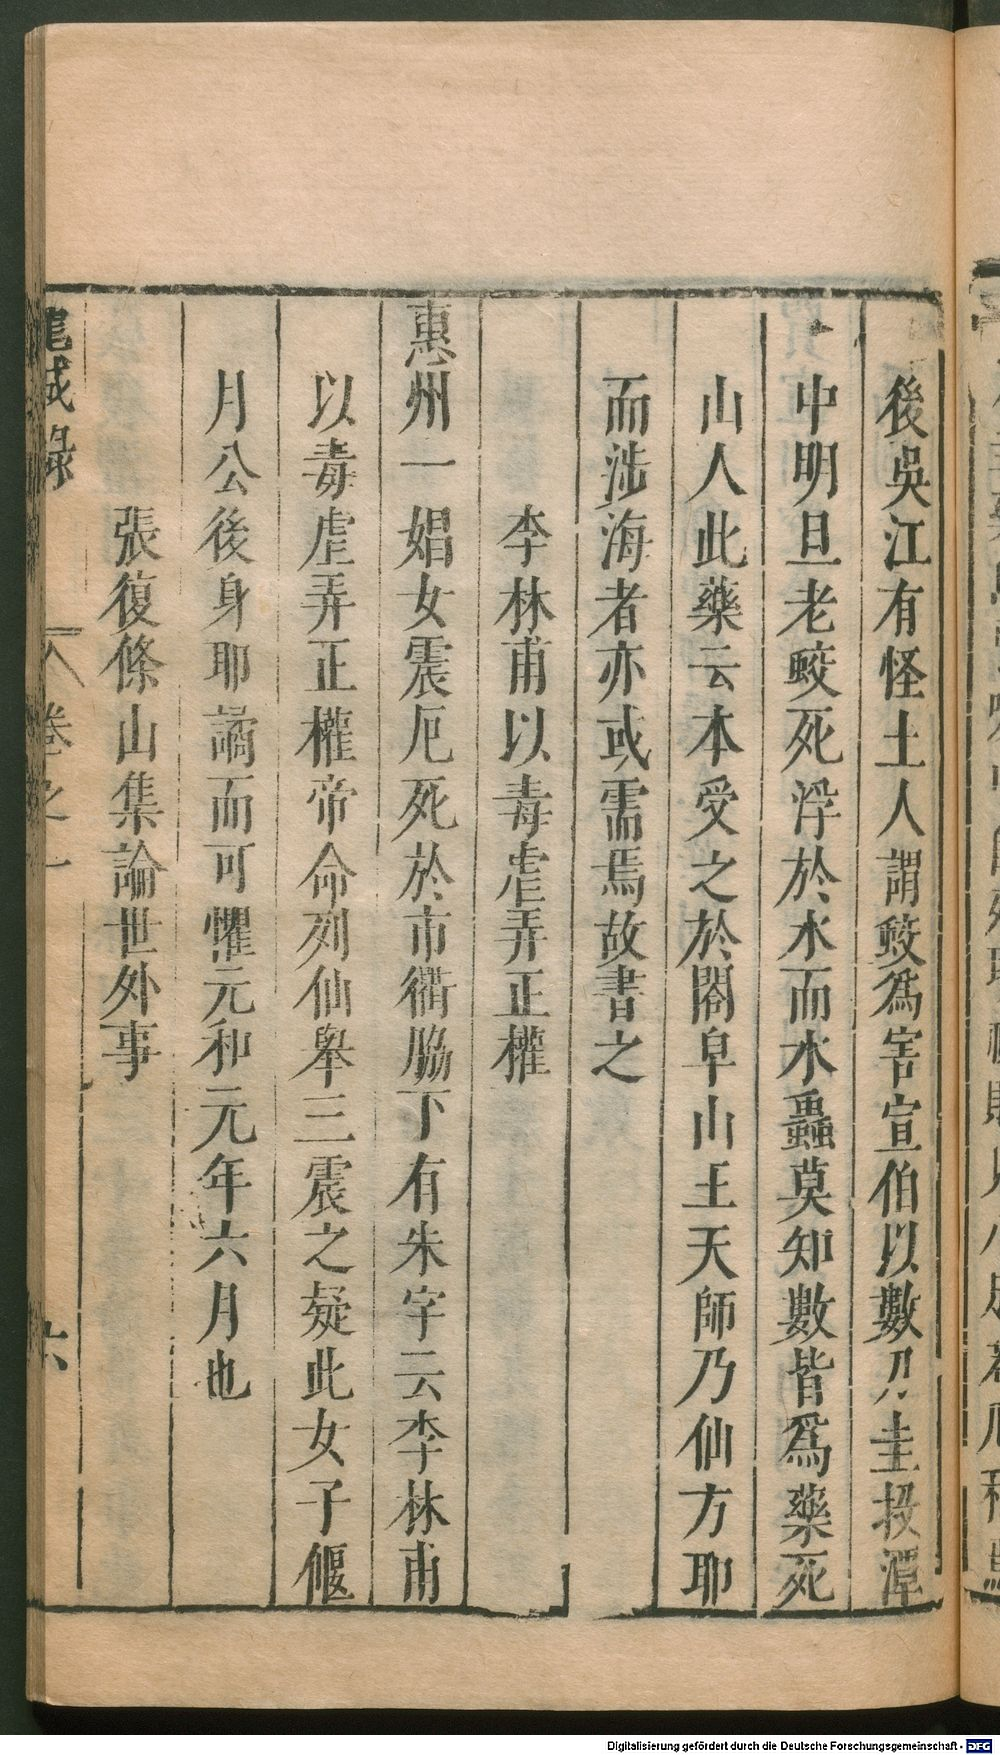 後吳江有怪土人謂鮫爲害宣伯以數刀圭投潭
中明旦老蛟死浮於水而水蟲莫知數皆爲藥死
山人此藥云本受之於閤皁山王天師乃仙方耶
而涉海者亦或需焉故書之
李林甫以毒虐弄正權
惠州一娼女震厄死於市衢脇下有朱字云李林甫
以毒虐弄正權帝命列仙舉三震之疑此女子偃
月公後身耶譎而可懼元和元年六月也
張復條山集論世外事
龍城錄 卷之一 六
Digitalisierung gefördert durch die Deutsche Forschungsgemeinschaft - DFG